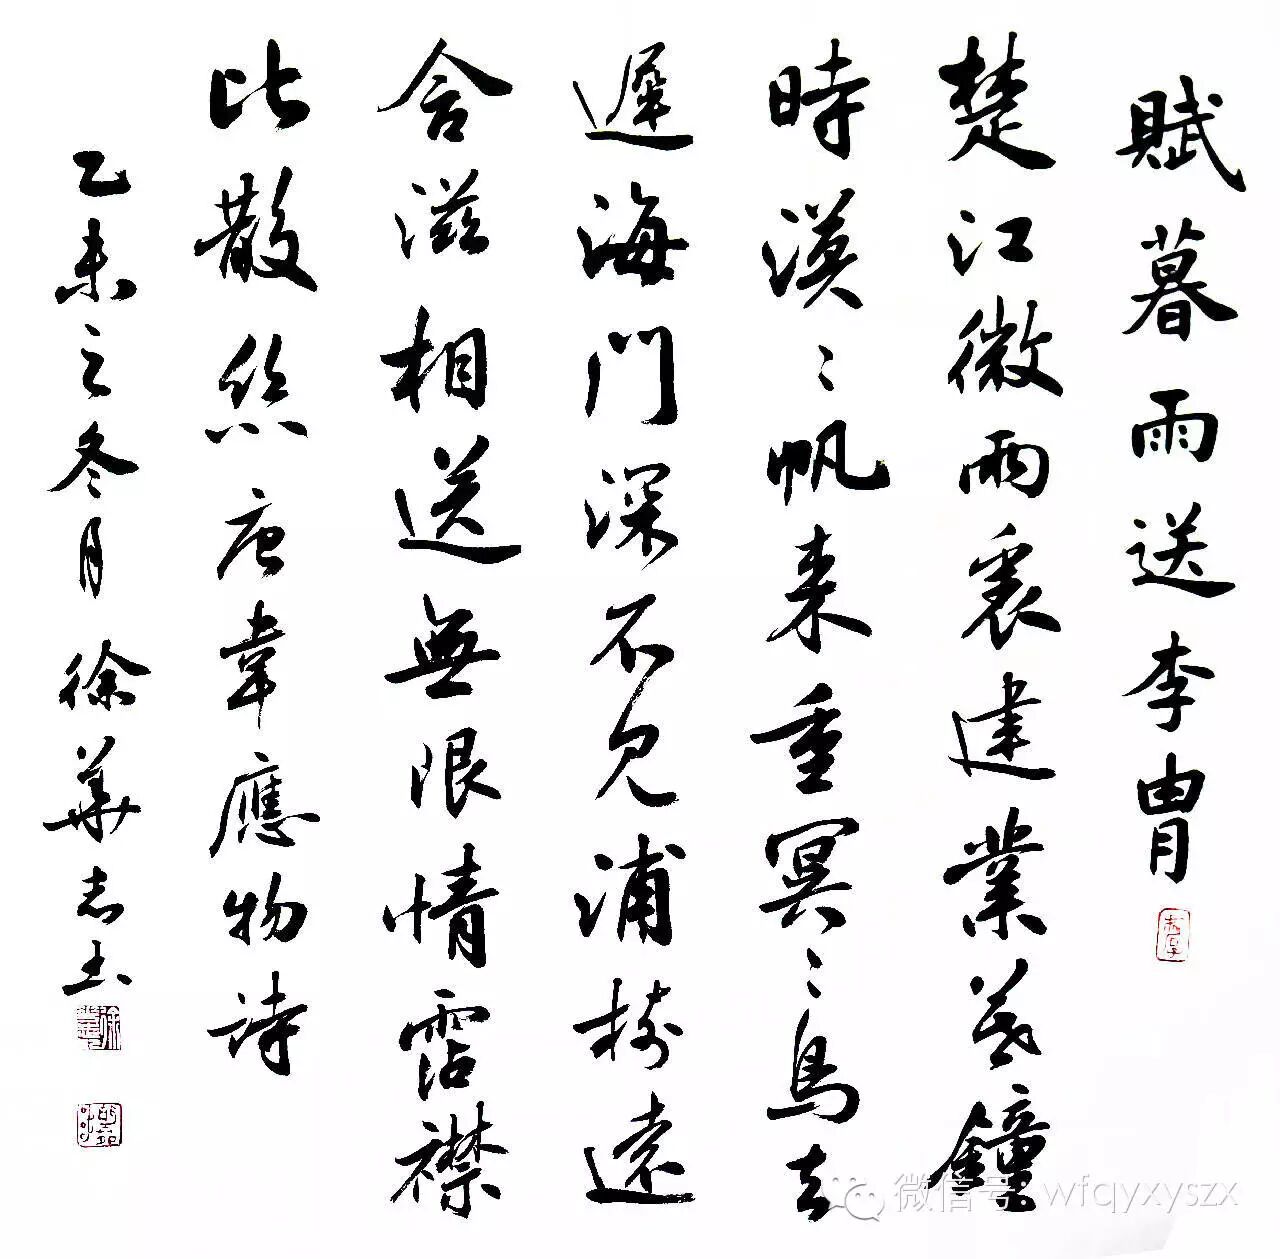 賦暮雨送李胄
楚江微雨裏建業暮鐘
時漠〻帆来重冥〻鳥去
遲海門深不見浦樹遠
含滋相送無限情霑襟
比散絲唐韋應物詩
乙未之冬月徐華志書
微信号: wfqyxyszx